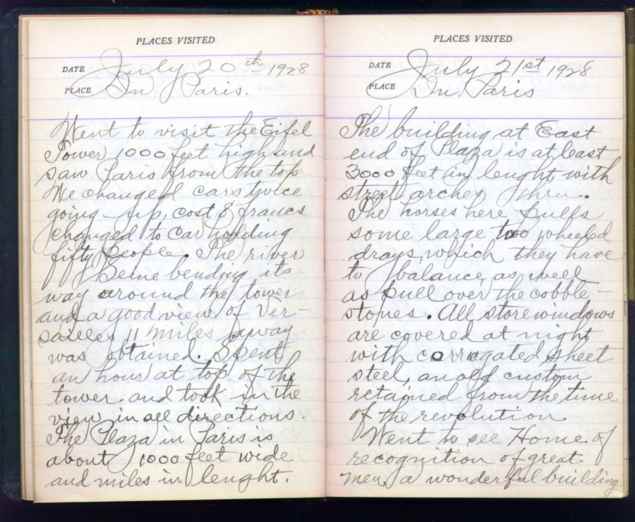 PLACES VISITED
DATE July 20th 1928
PLACE In Paris.
Went to visit the Eifel
Tower 1000 feet high and
saw Paris from the top
We changed cars twice
going up, cost 8 francs
changed to car holding
fifty people. The river
Seine bending its
way around the tower
and a good view of Ver-
sailles 11 miles away
was obtained. Spent
an hour at top of the
tower and took in the
view in all directions.
The Plaza in Paris is
about 1000 feet wide
and miles in lenght.
PLACES VISITED
DATE July 21st 1928
PLACE In Paris
The building at East
end of Plaza is at least
3000 feet in lenght with
street arches thru.
The horses here pulls
some large two wheeled
drays, which they have
to balance, as well
as pull over the cobble-
stones. All store windows
are covered at night
with corrogated sheet
steel, an old custom
retained from the time
of the revolution
Went to see Home of
recognition of great
men, a wonderful building